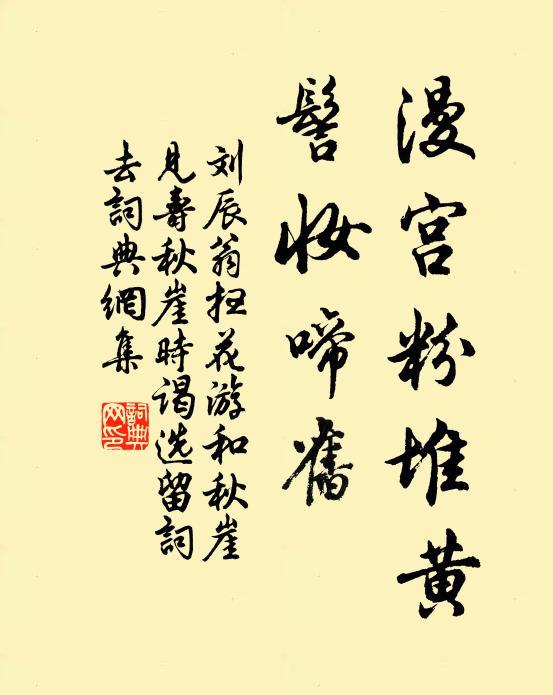 漫宫粉堆黄
髻妆啼旧
刘辰翁扭花游和秋崖
见寿秋崖時谒选留詞
去詞典網集
詞典网印